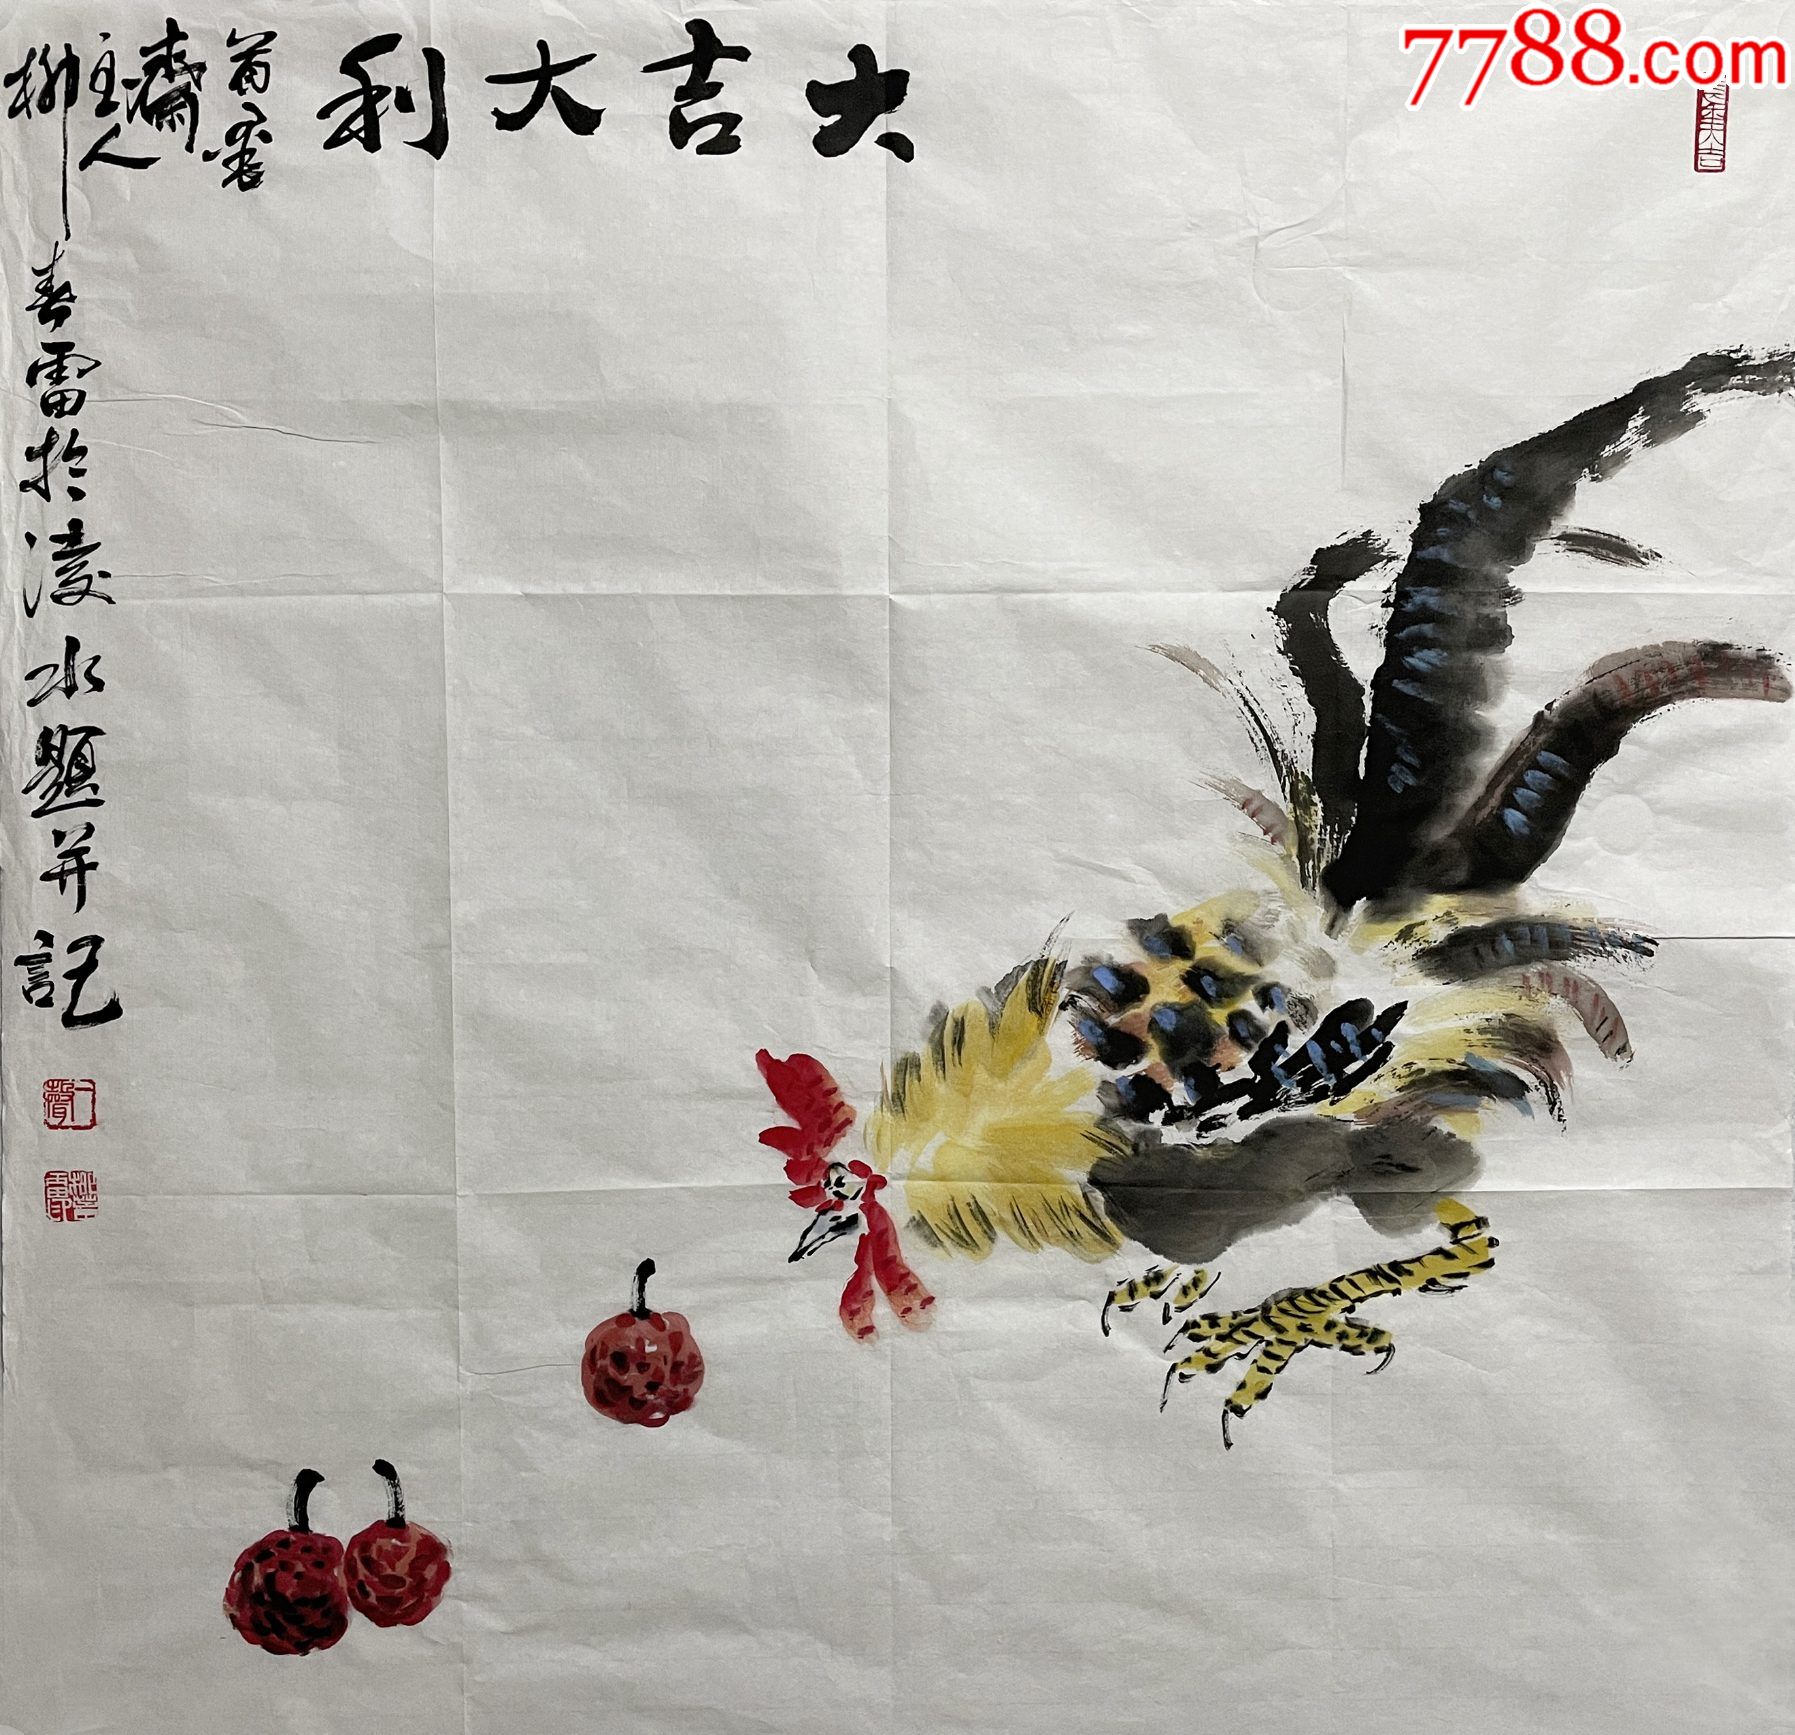 7788.com
大吉大利
齋
主人
柳春雷於凌水題并記